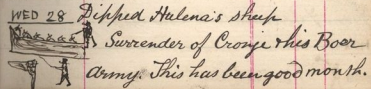 WED 28 Dipped Hulena's sheep
Surrender of Cronje & his Boer
army. This has been good month.